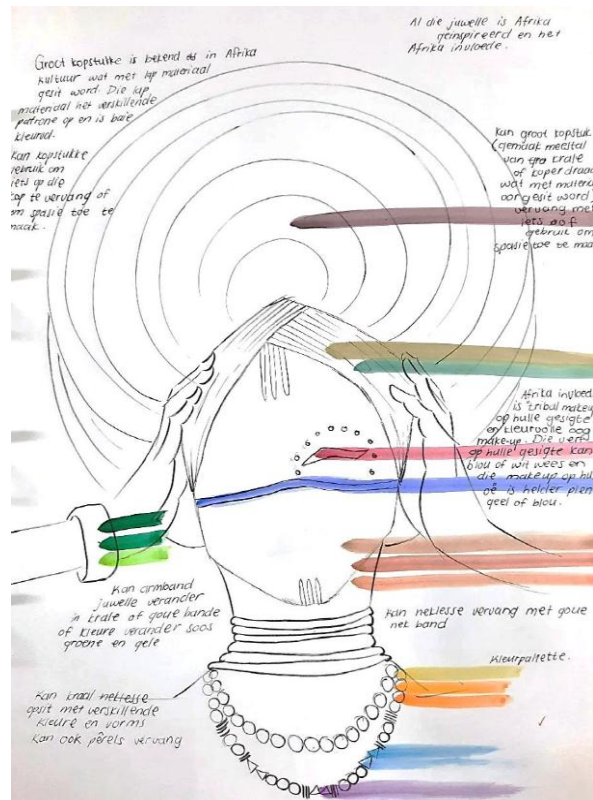 Al die juwelle is Afrika
geïnspireerd en het
Afrika invloede.
Groot kopstukke is bekend in Afrika
kultuur wat met lap materiaal
gesit word. Die lap
materiaal het verskillende
patrone op en is baie
kleurvol.
Kan kopstukke
gebruik om
iets op die
kop te vervang of
om spasie toe te
maak.
Kan groot kopstuk
(gemaak meestal
van krale
of koperdraad
wat met materi
oorgesit word)
vervang met
iets of
gebruik om
spasie toe te maa
Afrika invloed
is tribal makeup
op hulle gesigte
en kleurvolle oog
make-up. Die verf
op hulle gesigte kan
blou of wit wees en
die makeup op hul
oë is helder pien
geel of blou.
Kan armband
juwelle verander
in krale of goue bande
of kleure verander soos
groene en gele
Kan neklesse vervang met goue
nek band
Kleurpaltette.
Kan kraal neklesse
opsit met verskillende
kleure en vorms
Kan ook pêrels vervang